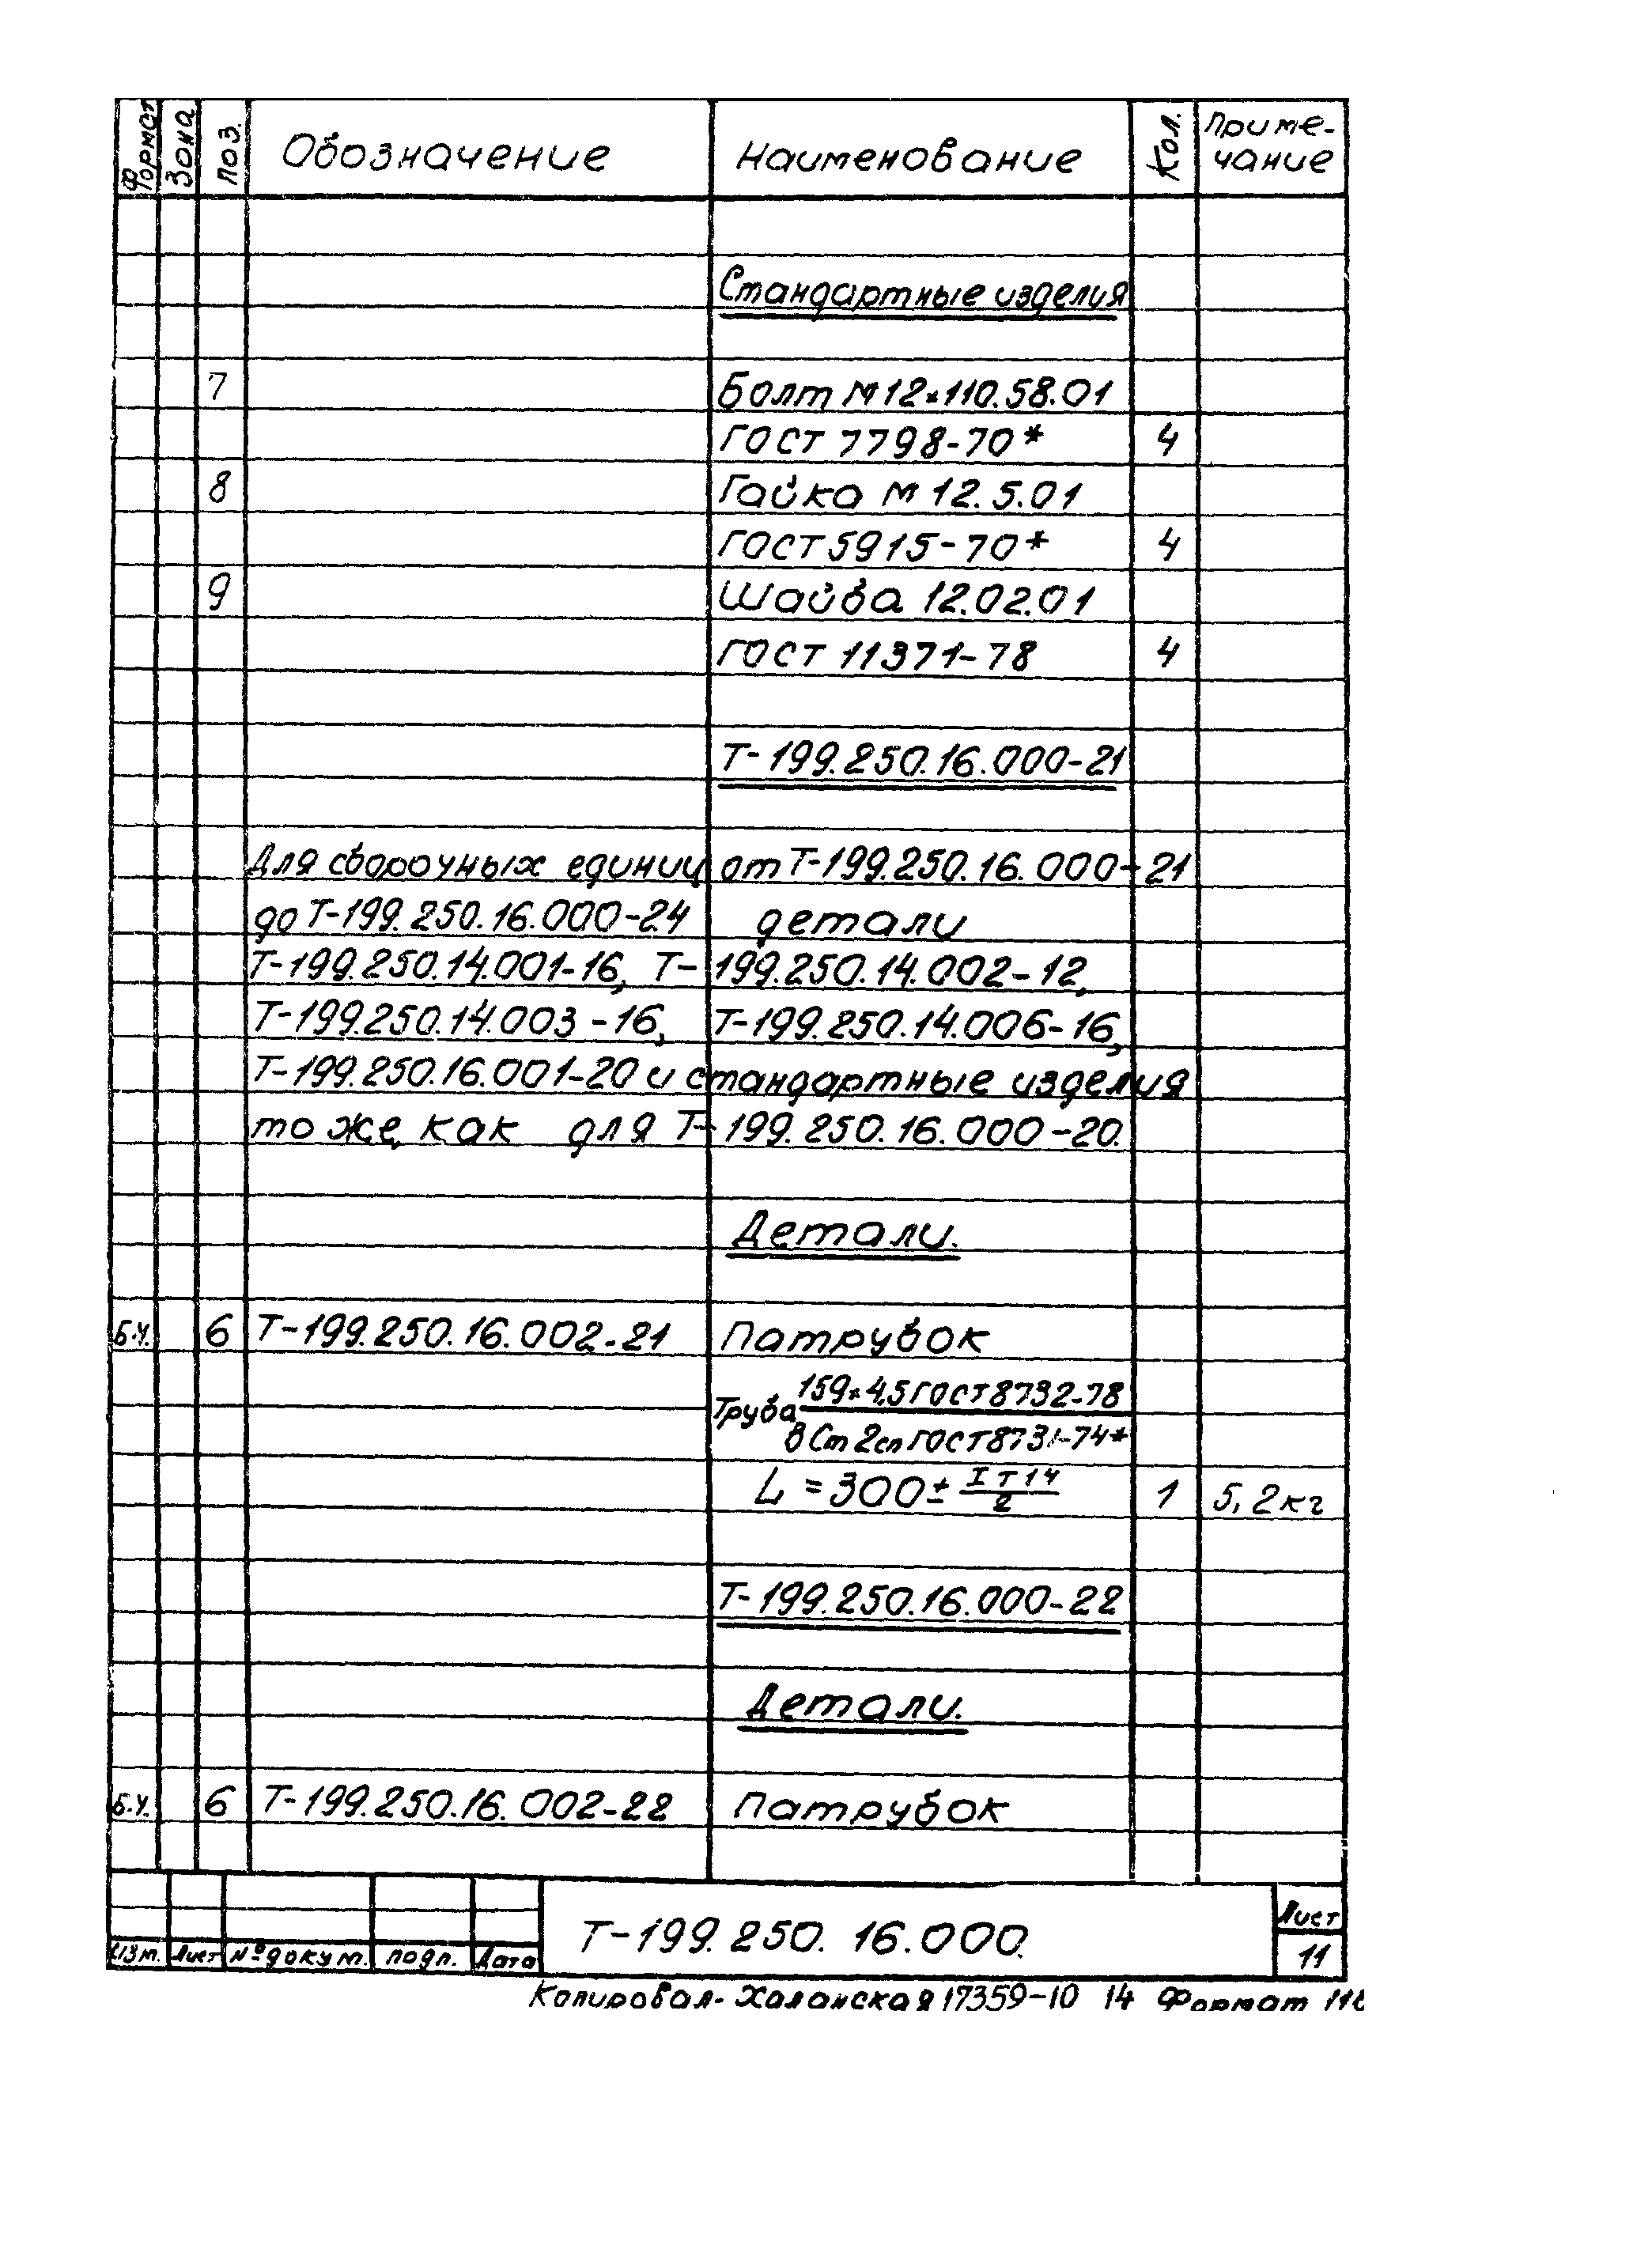 Формат Зона Поз. Обозначение Наименование Кол. Приме-
чание
Стандартные изделия
7 Болт М12×110.58.01
ГОСТ 7798-70* 4
8 Гайка М 12.5.01
ГОСТ 5915-70* 4
9 Шайба 12.02.01
ГОСТ 11371-78 4
Т-199.250.16.000-21
Для сборочных единиц от Т-199.250.16.000-21
до Т-199.250.16.000-24 детали
Т-199.250.14.001-16, Т-199.250.14.002-12,
Т-199.250.14.003-16, Т-199.250.14.006-16,
Т-199.250.16.001-20 и стандартные изделия
то же, как для Т-199.250.16.000-20.
Детали.
Б.Ч. 6 Т-199.250.16.002-21 Патрубок
Труба 159×4,5 ГОСТ 8732-78
В Ст 2сп ГОСТ 8731-74*
L = 300 ± IT14/2 1 5,2 кг
Т-199.250.16.000-22
Детали.
Б.Ч. 6 Т-199.250.16.002-22 Патрубок
Т-199.250.16.000
Лист
Изм. Лист № докум. подп. Дата 11
Копировал- Халанская 17359-10 14 Формат